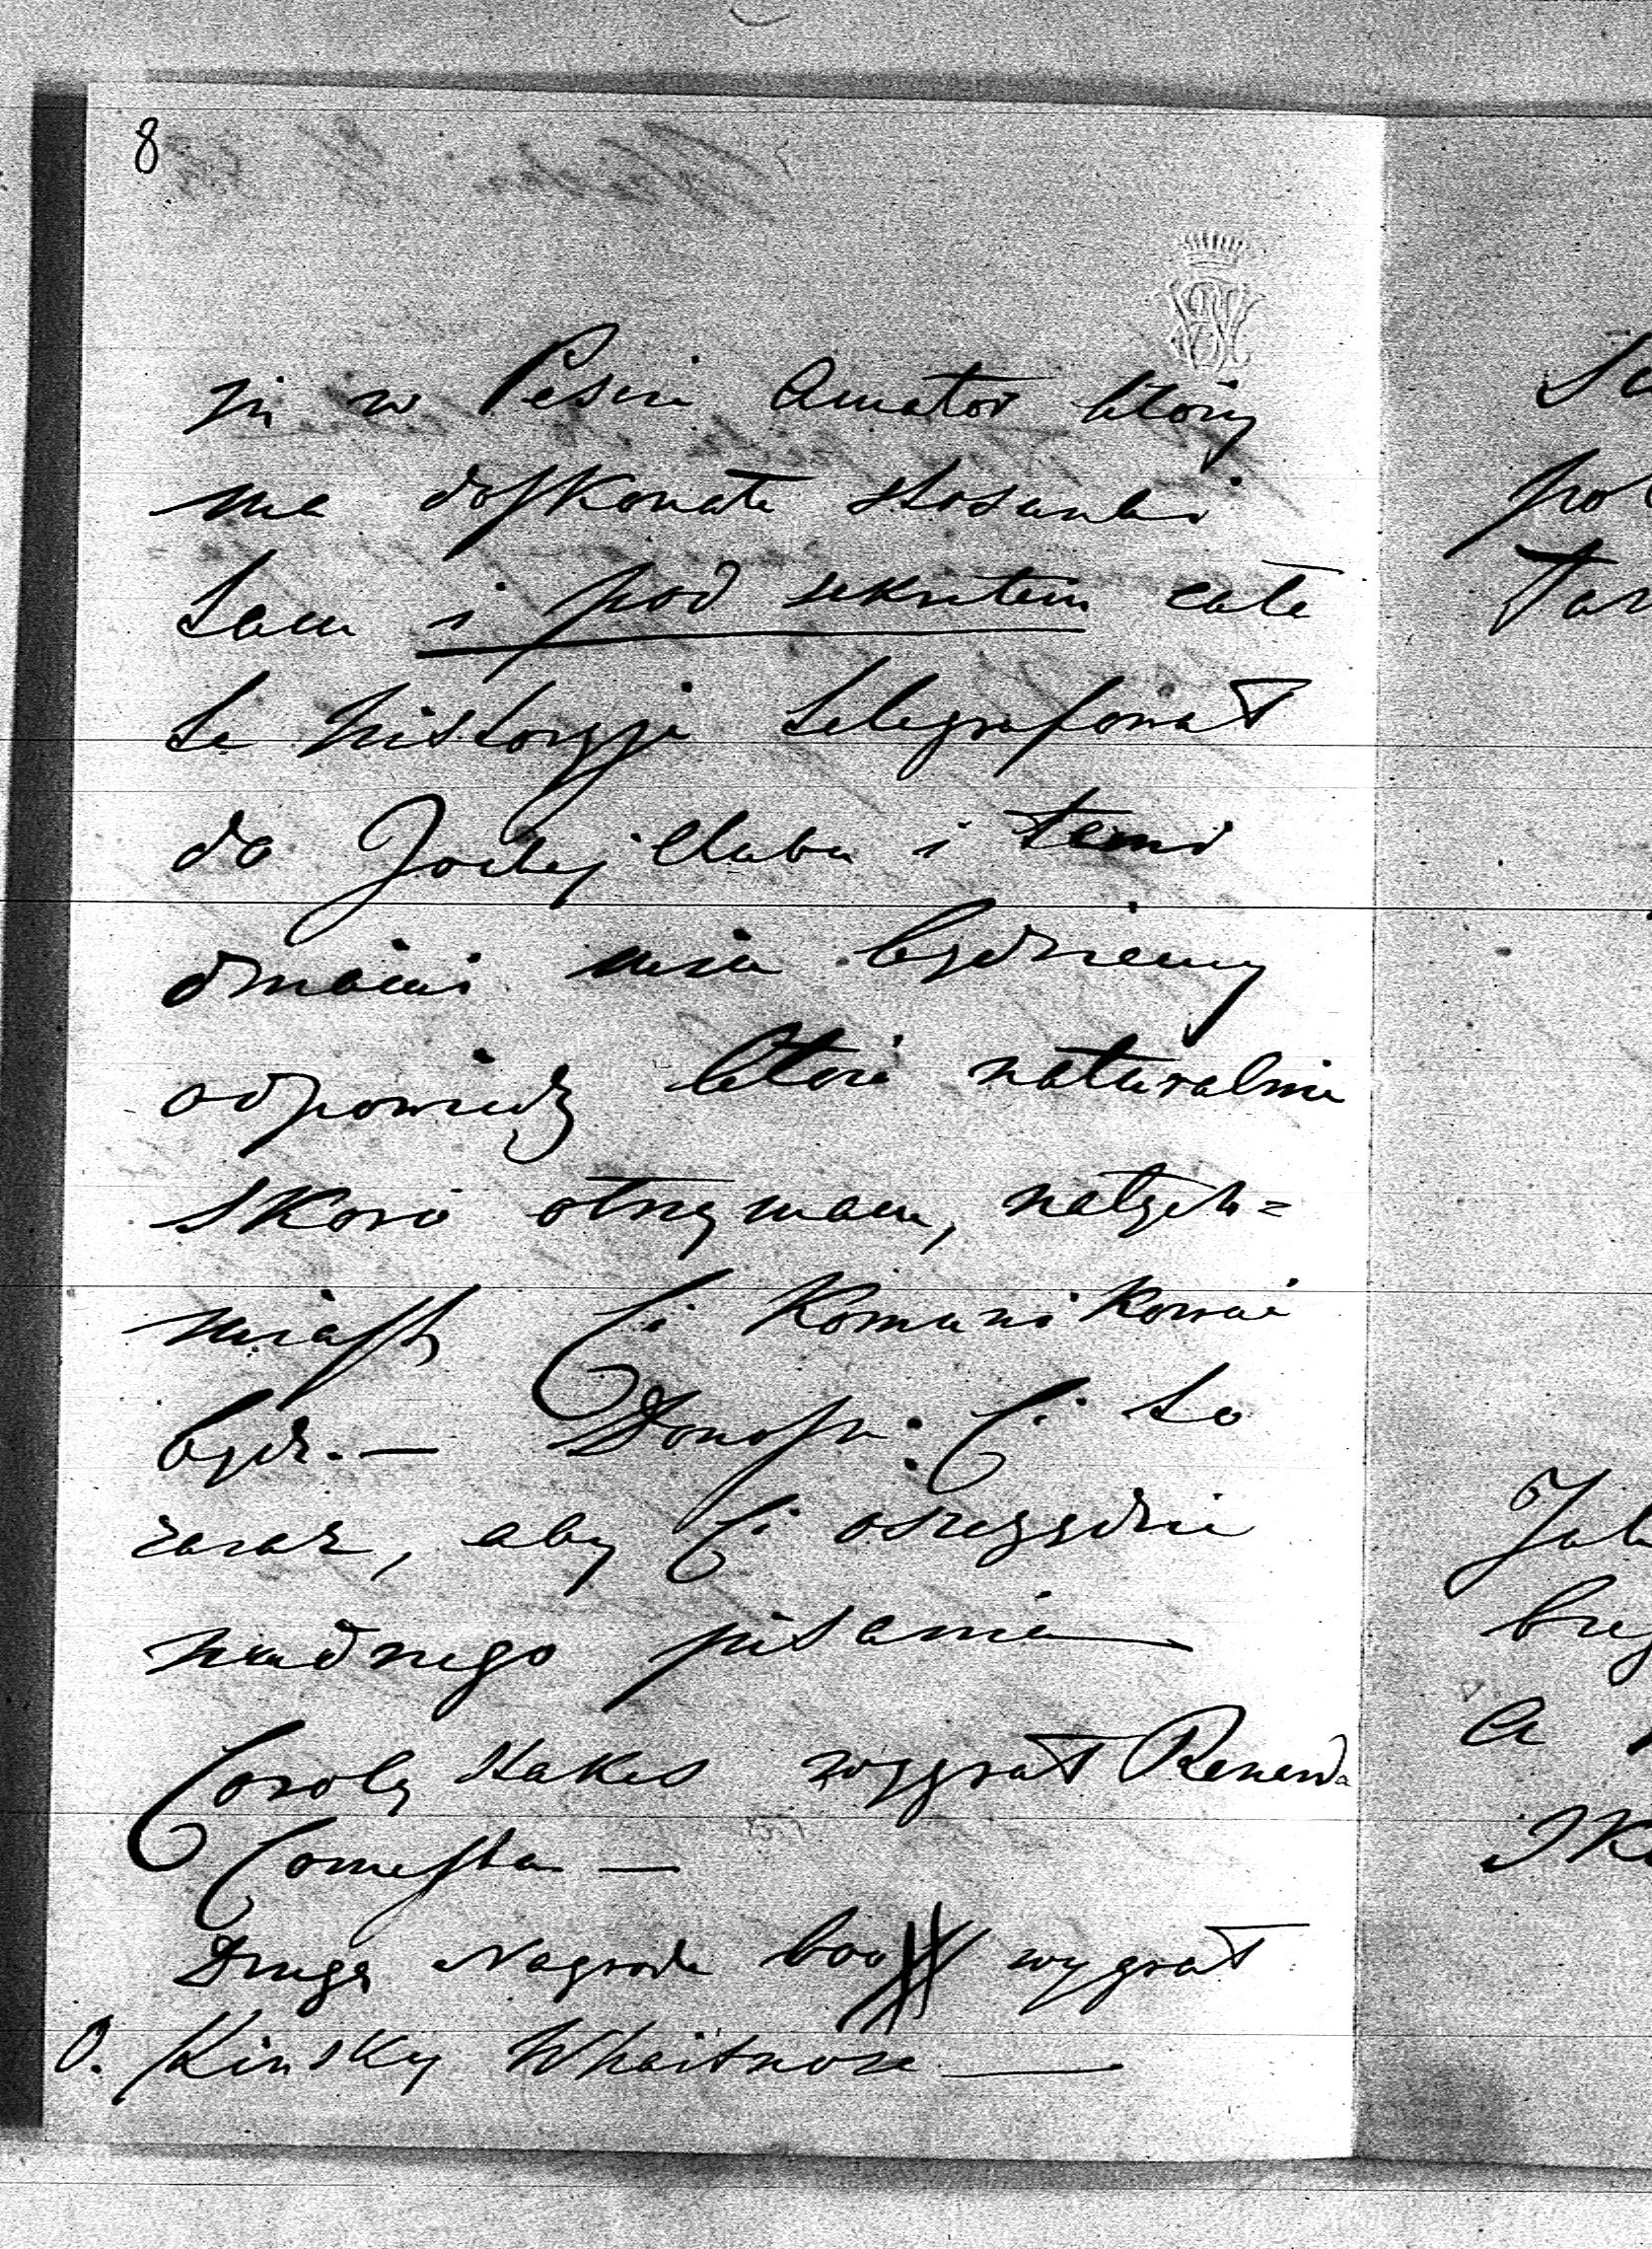 8
zń w Peszcie Amator który
ma doskonałe stosunki
tam i pod sekretem całe
te historyje telegrafował
do Jockej Clubu i temi
dniami mieć będziemy
odpowiedź którą naturalnie
skoro otrzymam, natych=
miast Ci Komunikować
będę. — Donoszę Ci to
zaraz, aby Ci oszczędzić
nudnego pisania
Caroly stakes wygrał Renewda
Comesta —
Druga Nagroda 600 wygrał
O. Kinsky Whaitnose —